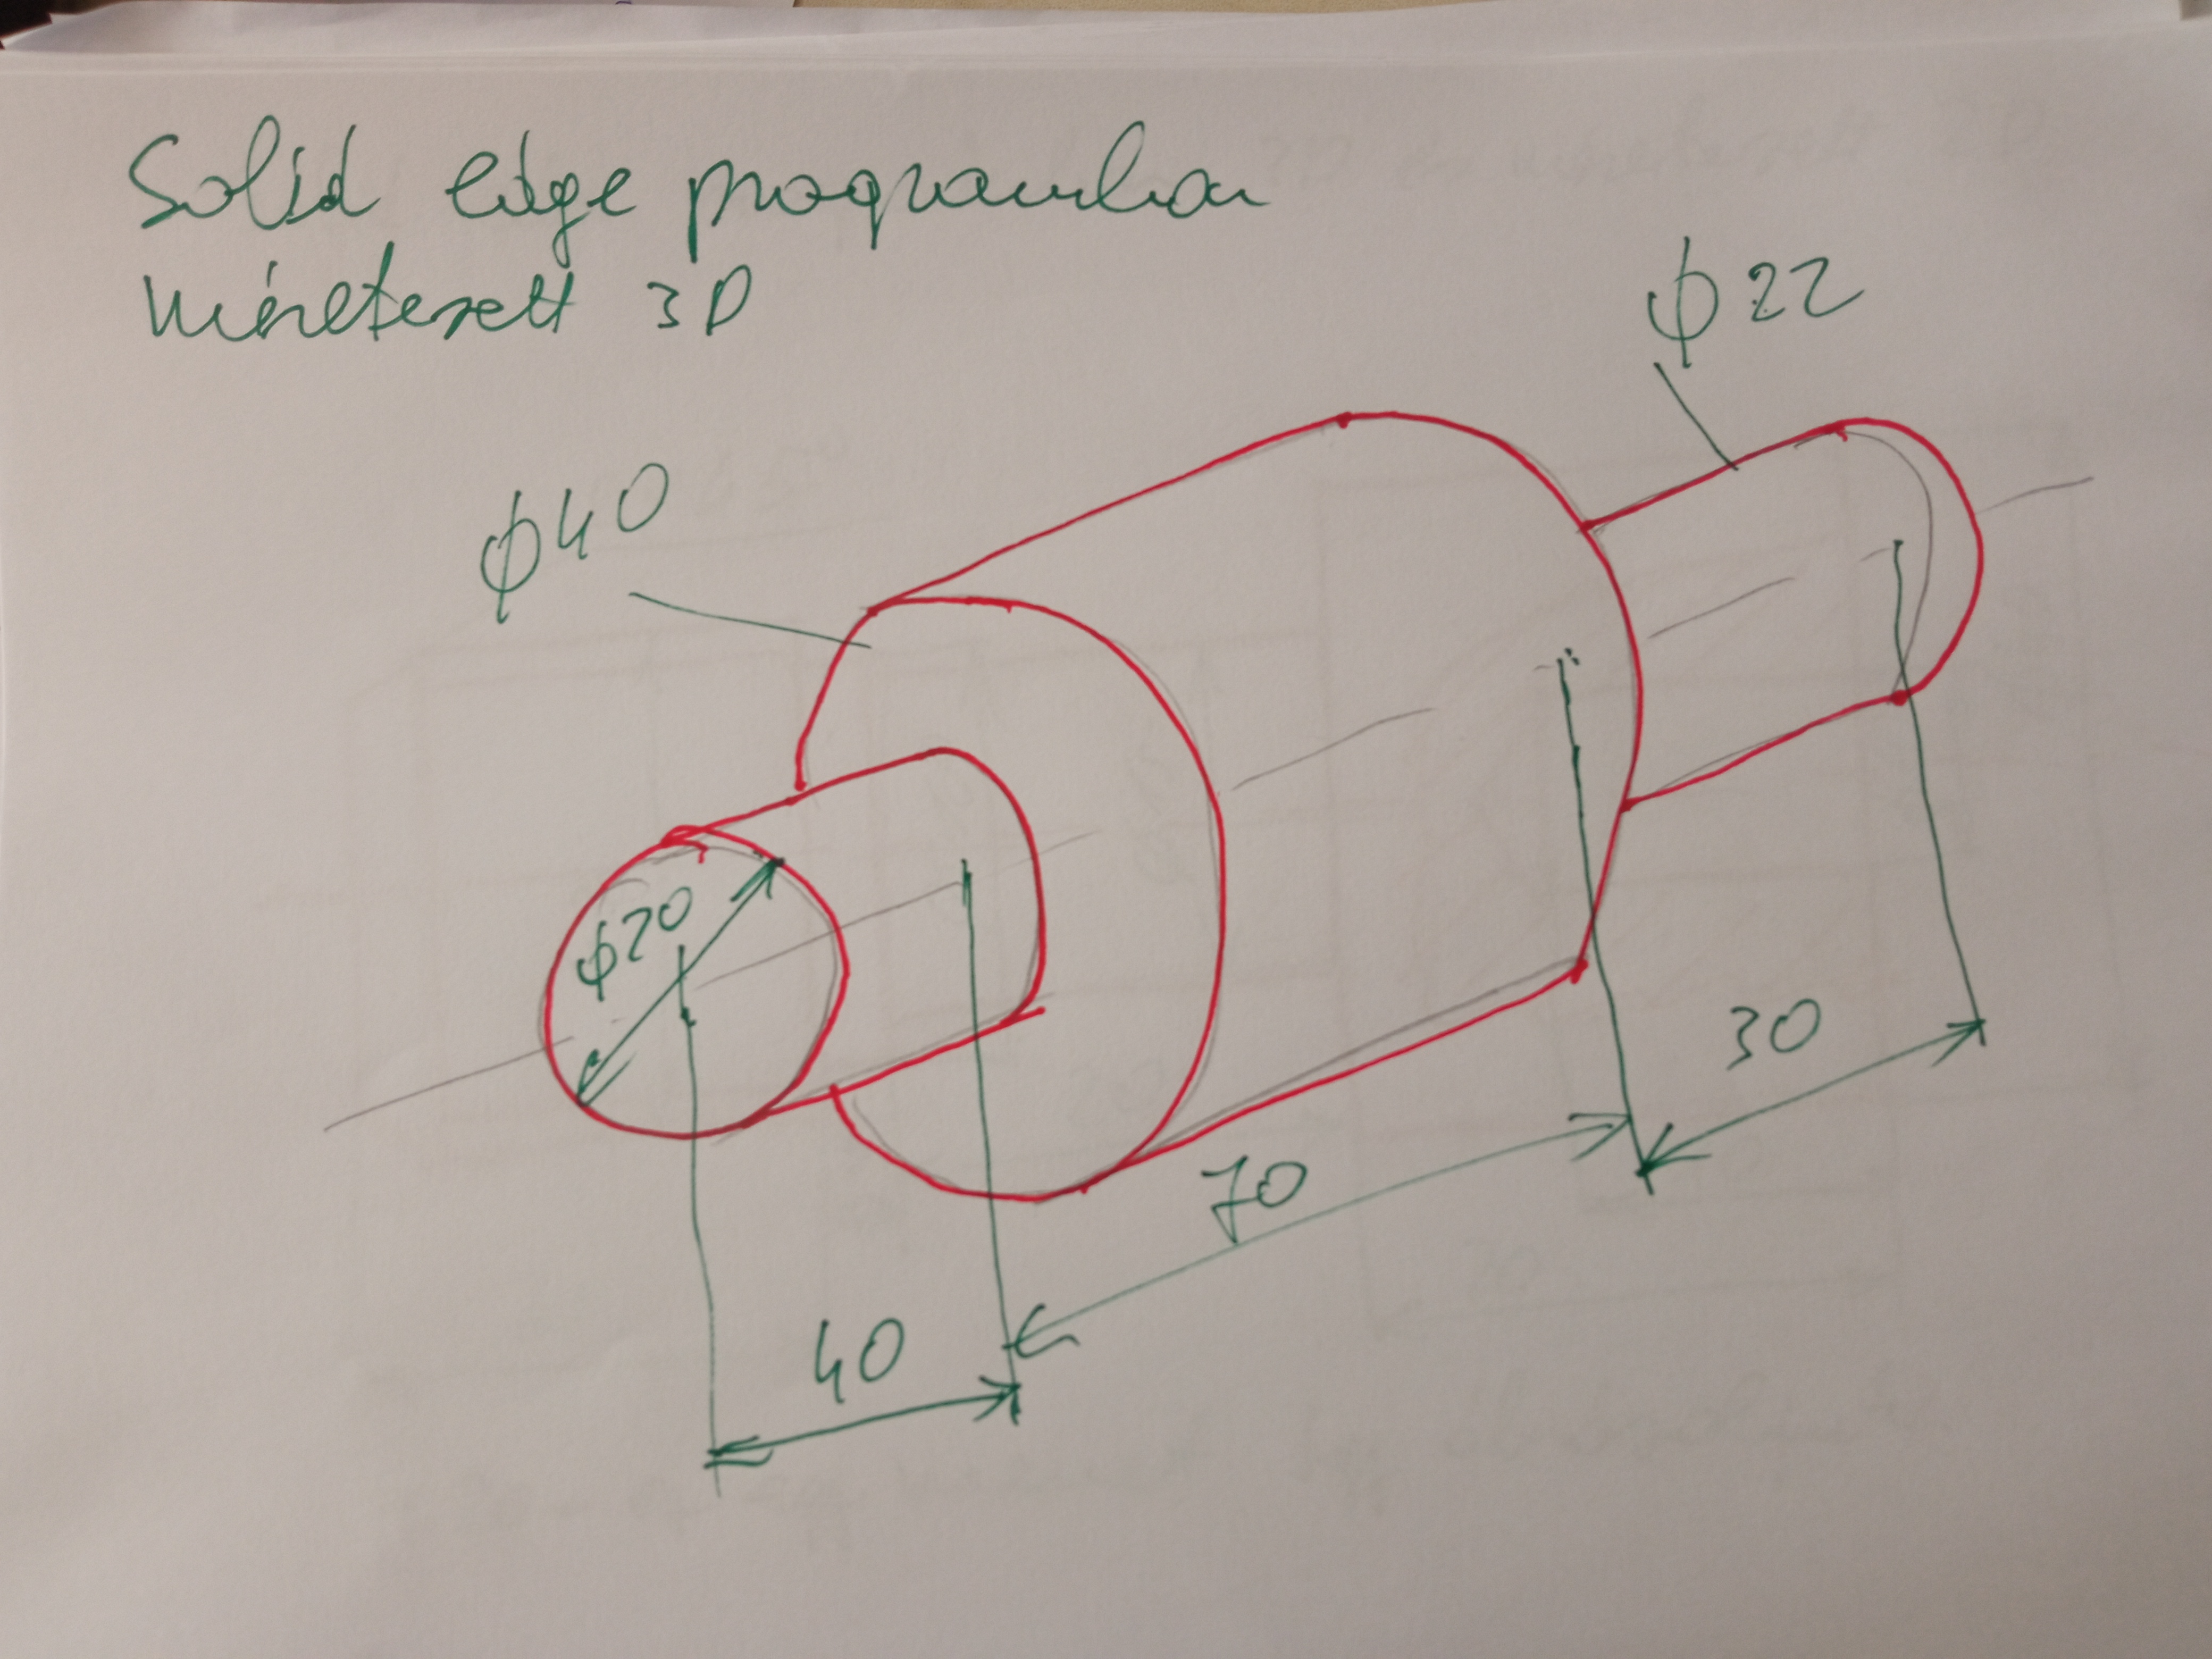 Solid edge programban
méretezett 3D
ϕ22
ϕ40
ϕ20
30
70
40